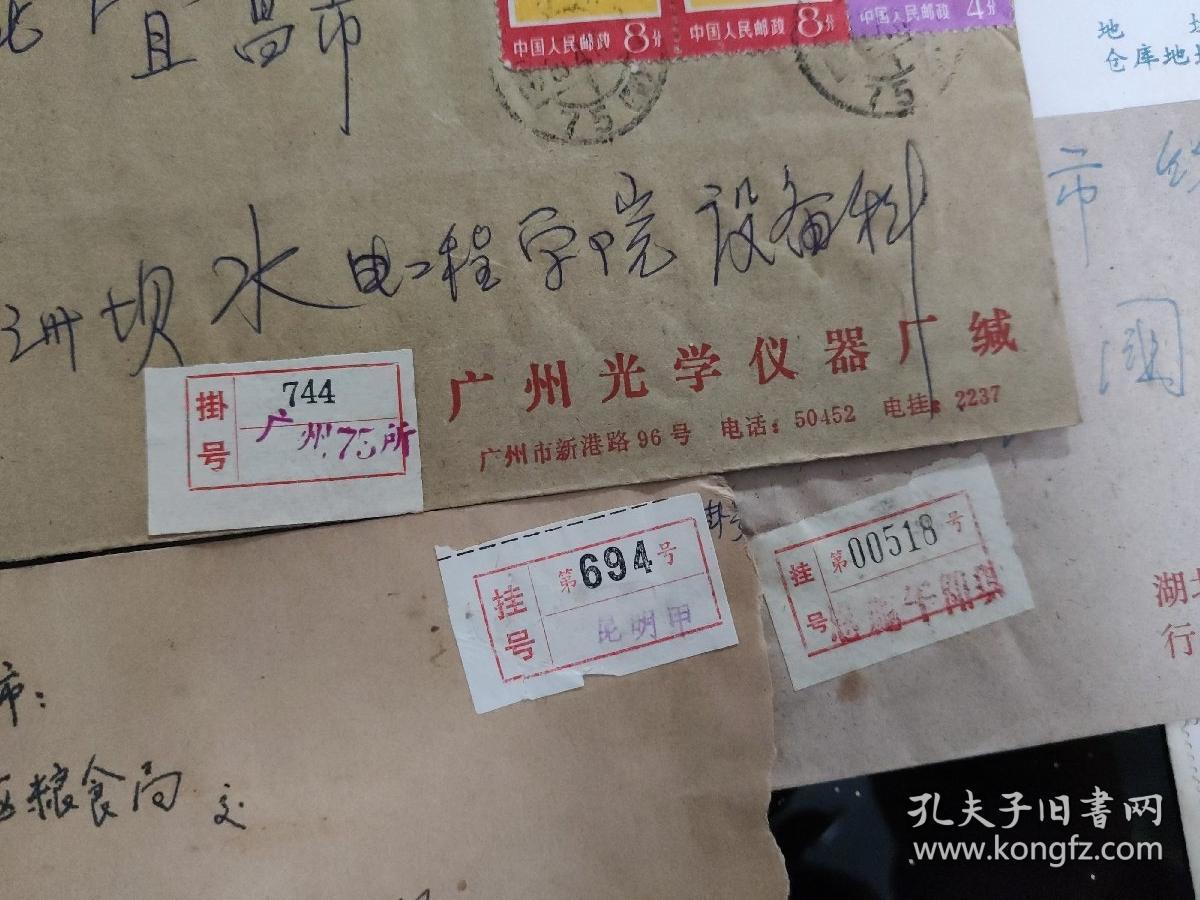 宜昌市
中国人民邮政 8分
中国人民邮政 8分
中国人民邮政 4分
75
75
地
仓库地
洲坝水电工程学院设备科
市
广州光学仪器厂缄
广州市新港路96号 电话：50452 电挂：2237
掛号
744
广州75所
挂号
第694号
昆明甲
挂号
第00518号
湖
行
市：
粮食局 交
孔夫子旧书网
www.kongfz.com